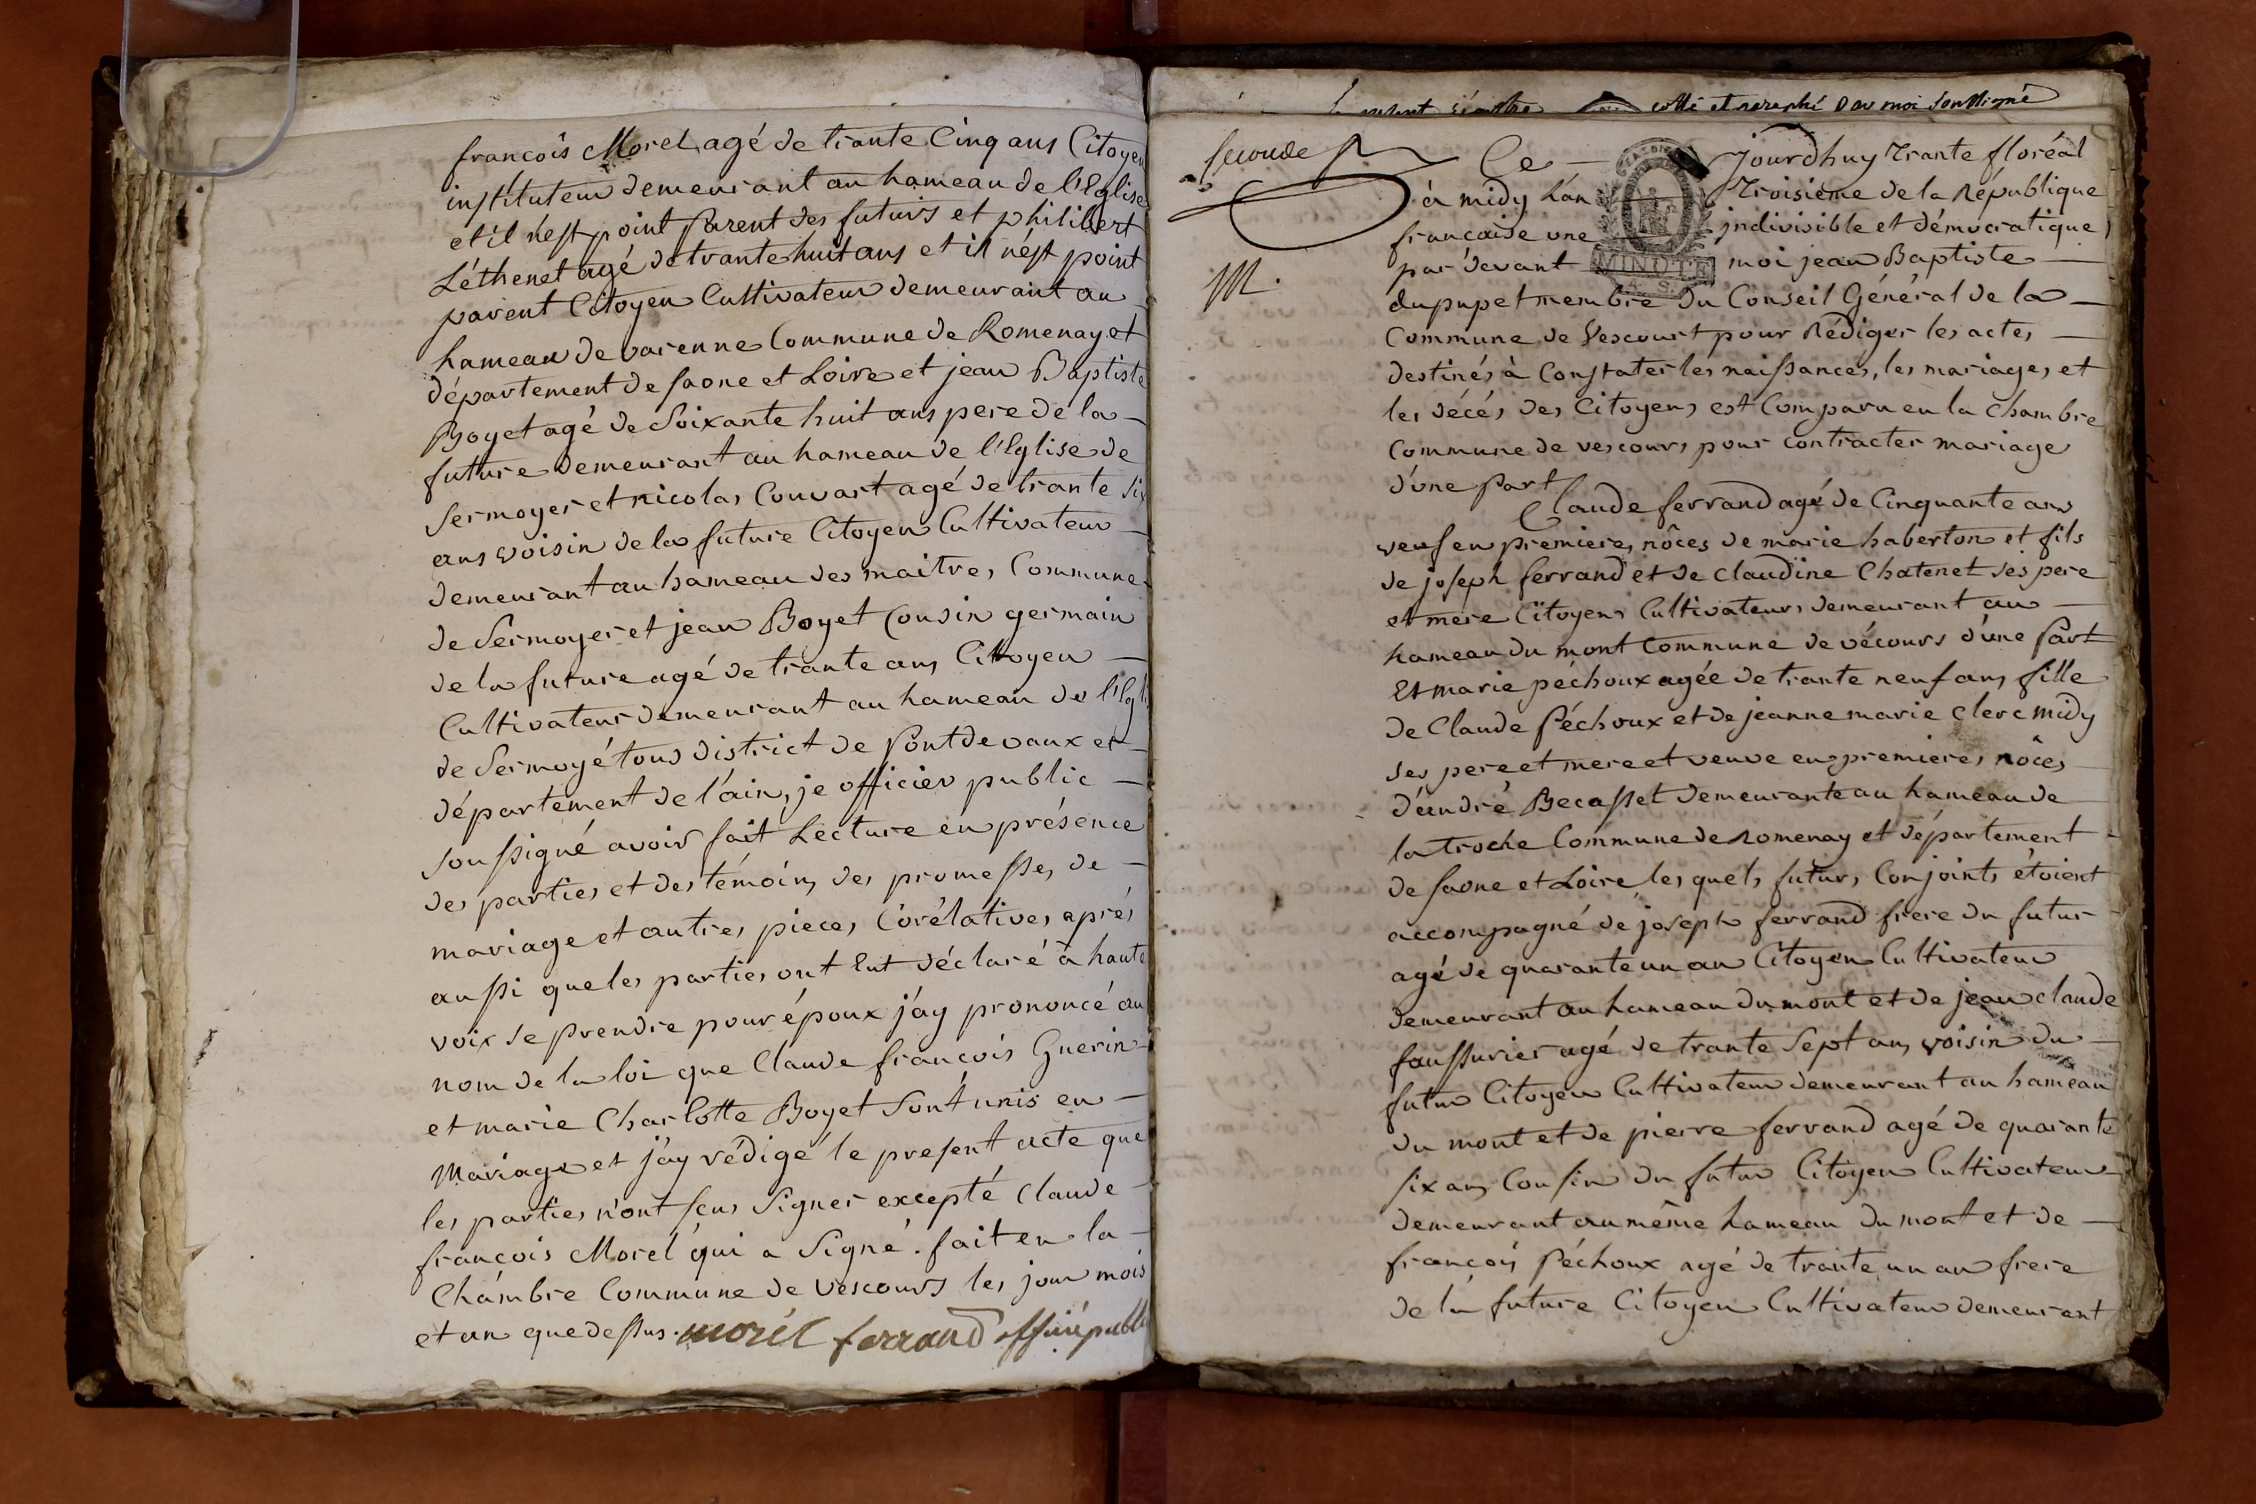 francois Morel agé de trante Cinq ans Citoyen
instituteur demeurant au hameau de l'Eglise
et il n'est point Parent des futurs et philibert
Léthenet agé de trante huit ans et il n'ést point
parent Citoyen Cultivateur demeurant au
hameau de varenne Commune de Romenay et
département de saone et Loire et jean Baptiste
Boyet agé de Soixante huit ans pere de la
future demeurant au hameau de l'Eglise de
Sermoyer et nicolas Couvart agé de trante six
ans voisin de la future Citoyen Cultivateur
demeurant au hameau des maitres Commune
de Sermoyer et jean Boyet Cousin germain
de la future agé de trante ans Citoyen
Cultivateur demeurant au hameau de l'Egli
de Sermoyé tous district de Pontdevaux et
département de l'ain, je officier public
soussigné avoir fait Lecture en présence
des parties et des témoins des promesses de
mariage et autres pieces Corélatives aprés
aussi que les parties ont Eut déclaré à haute
voix se prendre pour époux j'ay prononcé au
nom de la loi que Claude francois Guerin
et marie Charlotte Boyet Sont unis en
Mariage et j'ay rédigé le present acte que
les parties n'ont sçus Signer excepté Claude
francois Morel qui a Signé. fait en la
Chambre Commune de Vescours les jour mois
et an que dessus. morél ferrand officié public
cotté et paraphé par moi soussigné
seconde
M.
Ce jourdhuy Trante floréal
à midy L'an Troisième de la République
francaise une indivisible et démocratique
par devant moi jean Baptiste
MINUTE
dupupet membre du Conseil Général de la
Commune de Vescourt pour Rédiger les actes
destinés à Constater les naissances, les mariages et
les décés des Citoyens est Comparu en la Chambre
Commune de vescours pour contracter mariage
d'une Part
Claude ferrand agé de Cinquante ans
veuf en premieres nôces de marie haberton et fils
de joseph ferrand et de Claudine Chatenet ses pere
et mere Citoyens Cultivateurs demeurant au
hameau du mont Commune de vécours d'une Part
Et marie péchoux agée de trante neuf ans fille
de Claude Péchoux et de jeanne marie Clerc midy
ses pere et mere et veuve en premieres nôces
d'andré Becasset demeurante au hameau de
la troche Commune de Romenay et département
de saone et Loire les quels futurs Conjoints étoient
accompagné de joseph ferrand frere du futur
agé de quarante un an Citoyen Cultivateur
demeurant au hameau du mont et de jean claude
faussurier agé de trante Sept ans voisin du
futur Citoyen Cultivateur demeurant au hameau
du mont et de pierre ferrand agé de quarante
six ans Cousin du futur Citoyen Cultivateur
demeurant au même hameau du mont et de
françois Péchoux agé de trante un an frere
de la future Citoyen Cultivateur demeurant